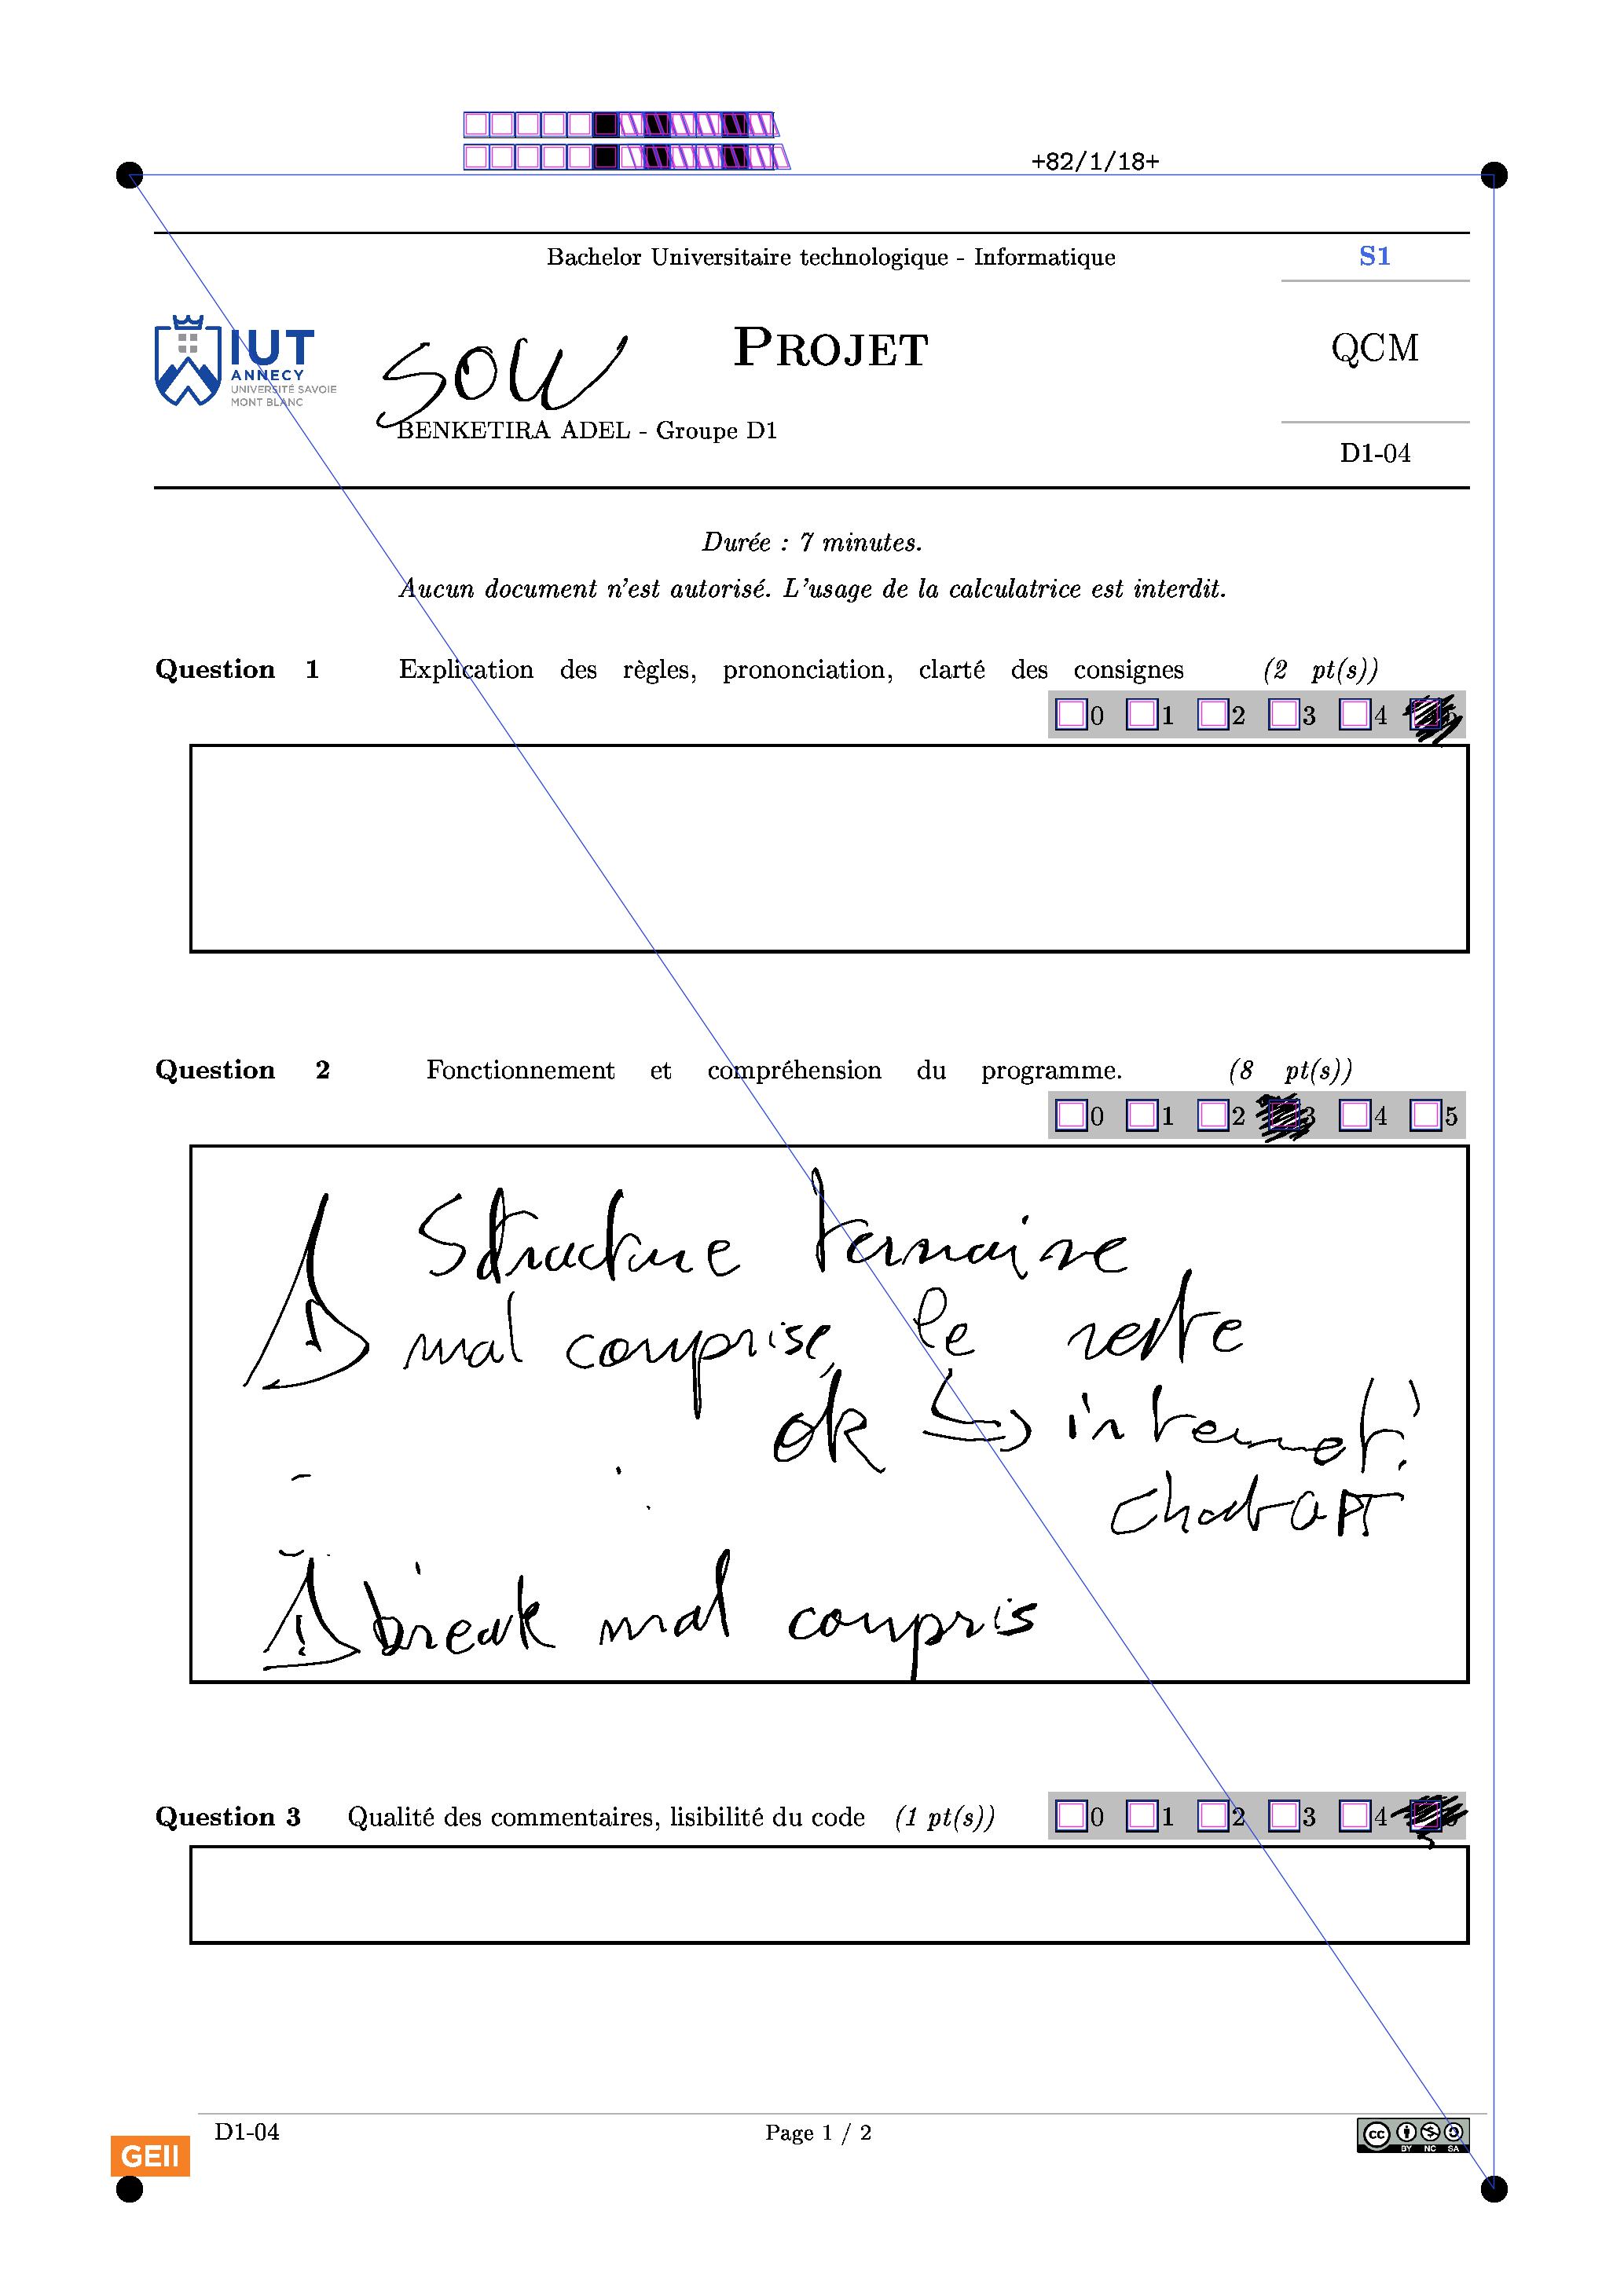 +82/1/18+
Bachelor Universitaire technologique - Informatique
S1
IUT
ANNECY
UNIVERSITÉ SAVOIE
MONT BLANC
SOW
PROJET
QCM
BENKETIRA ADEL - Groupe D1
D1-04
Durée : 7 minutes.
Aucun document n'est autorisé. L'usage de la calculatrice est interdit.
Question 1 Explication des règles, prononciation, clarté des consignes (2 pt(s))
0 1 2 3 4 5
Question 2 Fonctionnement et compréhension du programme. (8 pt(s))
0 1 2 3 4 5
Structure ternaire
mal comprise, le reste
ok ↪ internet !
ChatGPT
break mal compris
Question 3 Qualité des commentaires, lisibilité du code (1 pt(s)) 0 1 2 3 4
D1-04 Page 1 / 2
GEII
cc BY NC SA